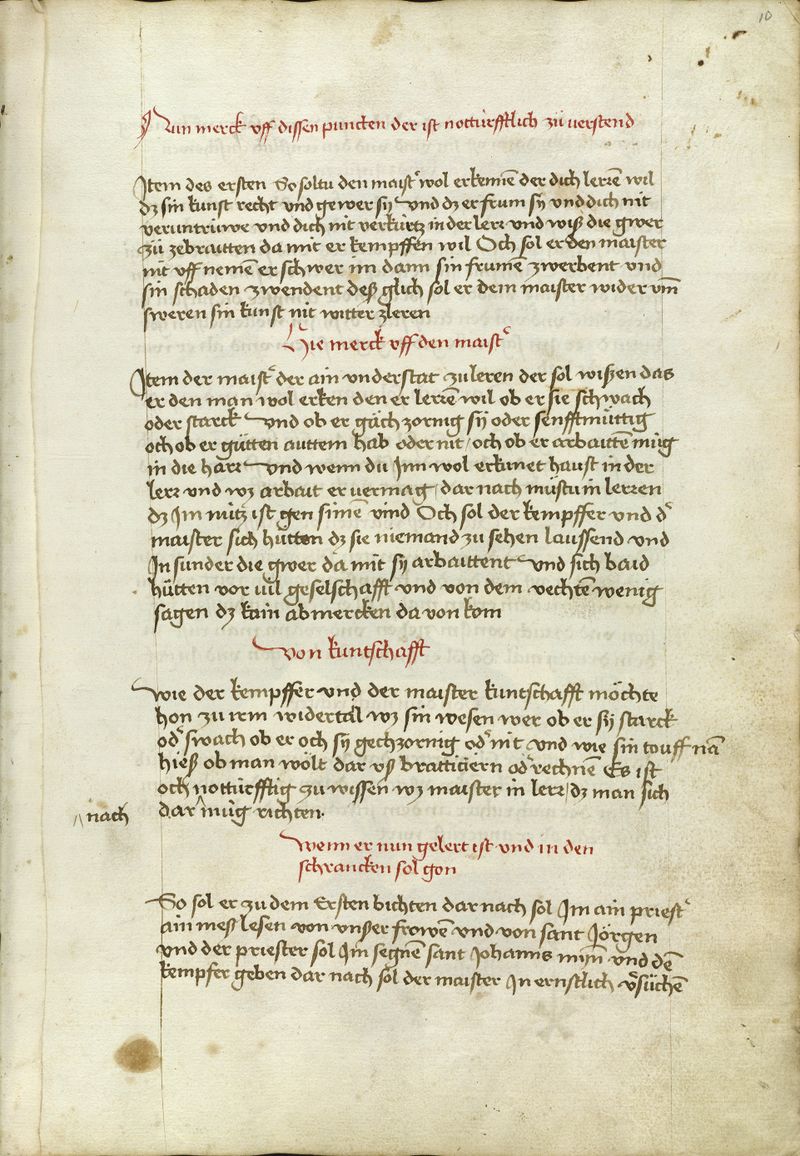 10
Nun merck vff dissen puncten der ist notturfftlich zů uerstend
Item des ersten So soltu den maist͛ wol erkennē der dich lerē wil
dz sin kunst recht vnd gewer sÿ vnd dz er frum sÿ vnd dich nit
veruntrúwe vnd dich nit verkúrtz in der lerr vnd wiß die gwer
zů zebraitten da mit er kempffen wil Och sol er den maister
nit vff nemen er schwer im dann sin frumē zwerbent vnd
sin schaden zwendent deß glich sol er dem maister wider vm̄
sweren sin kunst nit witter zleren
Hie merck vff den maist͛
Item der maist͛ der ain vnderstat zu leren der sol wißen das
er den man wol erken den er lerrē wil ob er sie schwach
oder starck vnd ob er gäch zornig sÿ oder senfftmúttig
och ob er gůtten auttem hab oder nit / och ob er arbaitte můg
in die harr vnd wenn du Inn wol erkunet haust in der
lerr vnd wz arbait er vermag / dar nach můstu in lerren
dz Im nútz ist gen sinē vind Och sol der kempffer vnd d͛
maister sich hútten dz sie niemand zu sehen laussend vnd
In sunder die gwer da mit sÿ arbaittent vnd sich baid
hútten vor uil geselschafft vnd von dem vechtē wenig
sagen dz kain abmercken da von kom
Von kuntschafft
Wie der kempffer vnd der maister kuntschafft möchte
hon zu irm widertail wz sin wesen wer ob er sÿ starck
od͛ swach ob er och sÿ gechzornig od͛ nit vnd wie sin touff nā
hieß ob man wölt dar vß bratticiern od͛ rechnē Es ist
och notturfftig zu wissen wz maister in lerr / dz man sich
nach
dar ^ mùg richten·
Wenn er nun gelert ist vnd in den
schrancken sol gon
So sol er zu dem Ersten bichten dar nach sol Im ain priest͛
ain meß lesen von vnßer frowē vnd von sant Jörgen
vnd der priester sol Im segnē sant Johanns mini vnd dē
kempfer geben dar nach sol der maister In ernstlich v͛sůchē